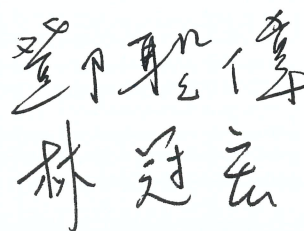 鄧聖偉
林冠宏